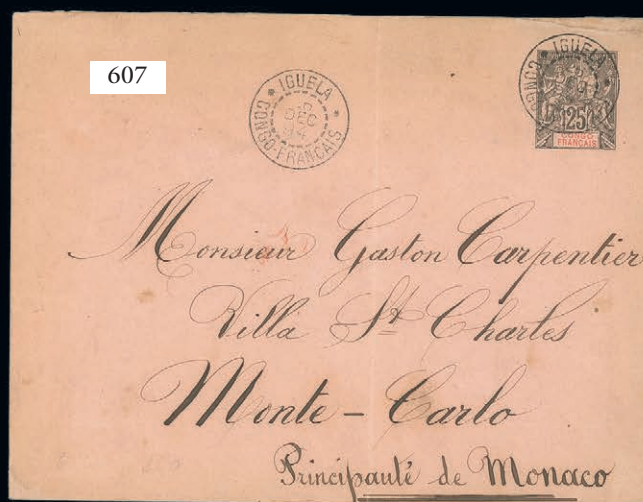 607
IGUELA
DEC
94
CONGO-FRANCAIS
IGUELA
CONGO
25
CONGO
FRANCAIS
Monsieur Gaston Carpentier
Villa St Charles
Monte-Carlo
Principauté de Monaco